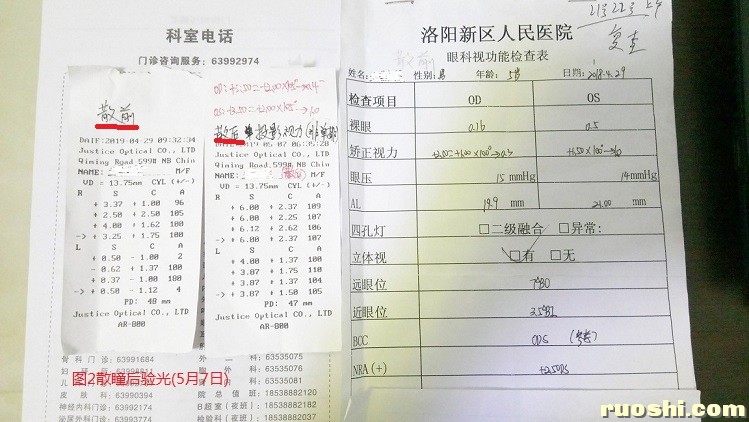 科室电话
门诊咨询服务: 63992974
散前
DATE:2019-04-29 09:32:34
Justice Optical CO., LTD
Qiming Road.599# NB Chin
NAME: M/F
VD = 13.75mm CYL (+/-)
R S C A
+ 3.37 + 1.00 96
+ 2.50 + 2.50 105
+ 4.00 + 1.62 100
-> + 3.25 + 1.75 100
L S C A
+ 0.50 - 1.00 2
- 0.62 + 1.37 100
+ 0.37 - 1.00 180
-> + 0.50 - 1.12 4
PD: 48 mm
Justice Optical CO., LTD
AR-800
散后
2019-05-07 06:35:28
Justice Optical CO., LTD
Qiming Road.599# NB Chin
NAME: M/F
VD = 13.75mm CYL (+/-)
R S C A
+ 6.00 + 2.37 109
+ 6.00 + 2.25 107
+ 6.12 + 2.62 106
-> + 6.00 + 2.37 107
L S C A
+ 4.00 + 1.37 100
+ 3.75 + 1.75 110
+ 3.87 + 1.37 104
-> + 3.87 + 1.50 105
PD: 47 mm
Justice Optical CO., LTD
AR-800
骨科门诊: 63991684
皮肤科: 63990394
神经内科门诊: 63991772
泌尿外科门诊: 63991774
外二科: 63535076
科: 63535081
院总值班: 18538882120
日超室(夜班): 18538882182
检验科(夜班): 18538882137
图2散瞳后验光(5月7日)
复查
洛阳新区人民医院
眼科视功能检查表
姓名: 性别: 男 年龄: 5岁 日期: 2019.4.29
检查项目 OD OS
裸眼 0.16 0.5
矫正视力
眼压 15 mmHg 14 mmHg
AL 19.9 mm 21.00 mm
四孔灯 □二级融合 □异常:
立体视 □有 □无
远眼位
近眼位
BCC
NRA(+) +2.50DS
ruoshi.com